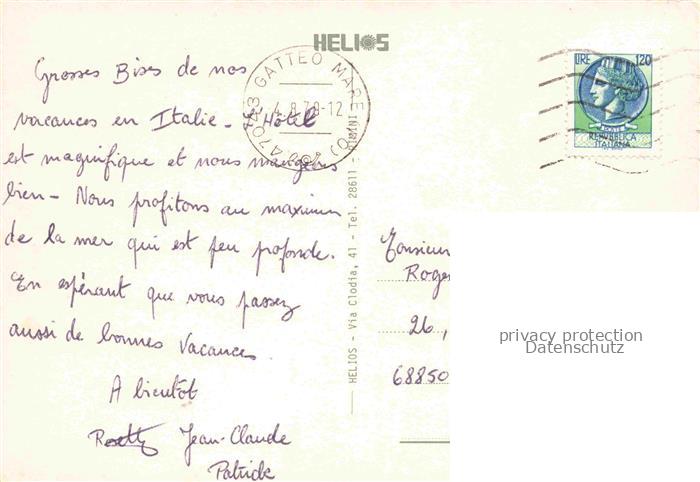 HELIOS
Grosses Bises de nos
vacances en Italie - L'Hotel
est magnifique et nous mangeons
bien - Nous profitons au maximum
de la mer qui est peu profonde.
En espérant que vous passez
aussi de bonnes Vacances.
A bientot
Rosetty Jean-Claude
Patrick
47043 GATTEO MARE (FO)
4.8.78-12
HELIOS - Via Clodia, 41 - Tel. 28611 - RIMINI
LIRE 120
REPUBBLICA
ITALIANA
Monsieur
Roger
26,
68850
privacy protection
Datenschutz